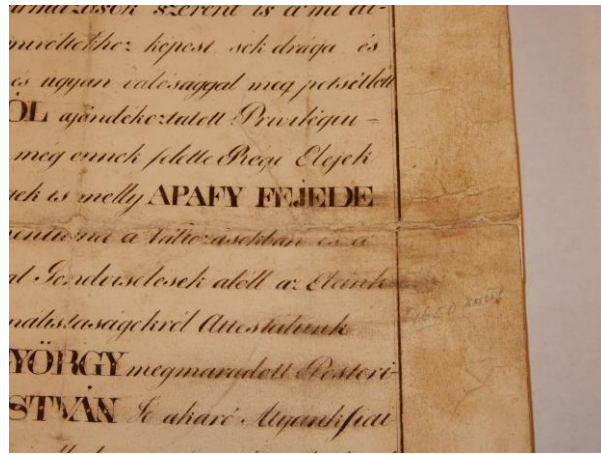 szerent is a mi ál-
képest sok drága és
és ugyan valósággal meg petsétlett
ÓL ajándékoztatott Privilégiu-
meg ennek felette Régi Elejek
is melly APAFY FEJEDE
a Változásokban és a
Gondviselések alatt az Eleink
Attestálunk
YÖRGY megmaradott Posteri-
STVÁN akaró Atyánkfiai
1650